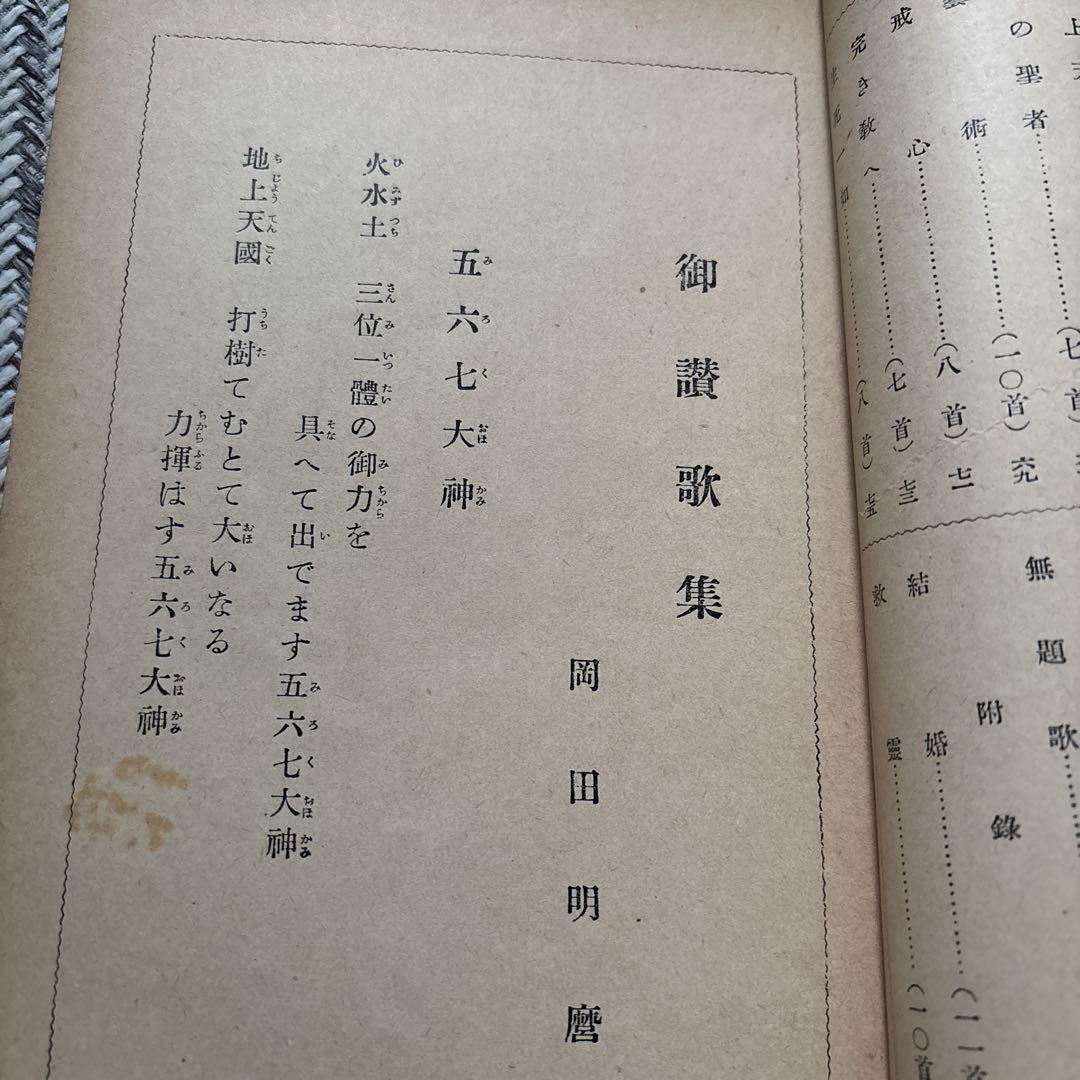 上天
の聖者………(七首)
術………(一〇首)究
心………(八首)七一
戒 完き敎へ………(七首)七三
………(八首)七五
無題歌………
附錄
結婚………(一一首
靈………(一〇首
御讃歌集
岡田明麿
五六七大神
火水土 三位一體の御力を
具へて出でます五六七大神
地上天國 打樹てむとて大いなる
力揮はす五六七大神